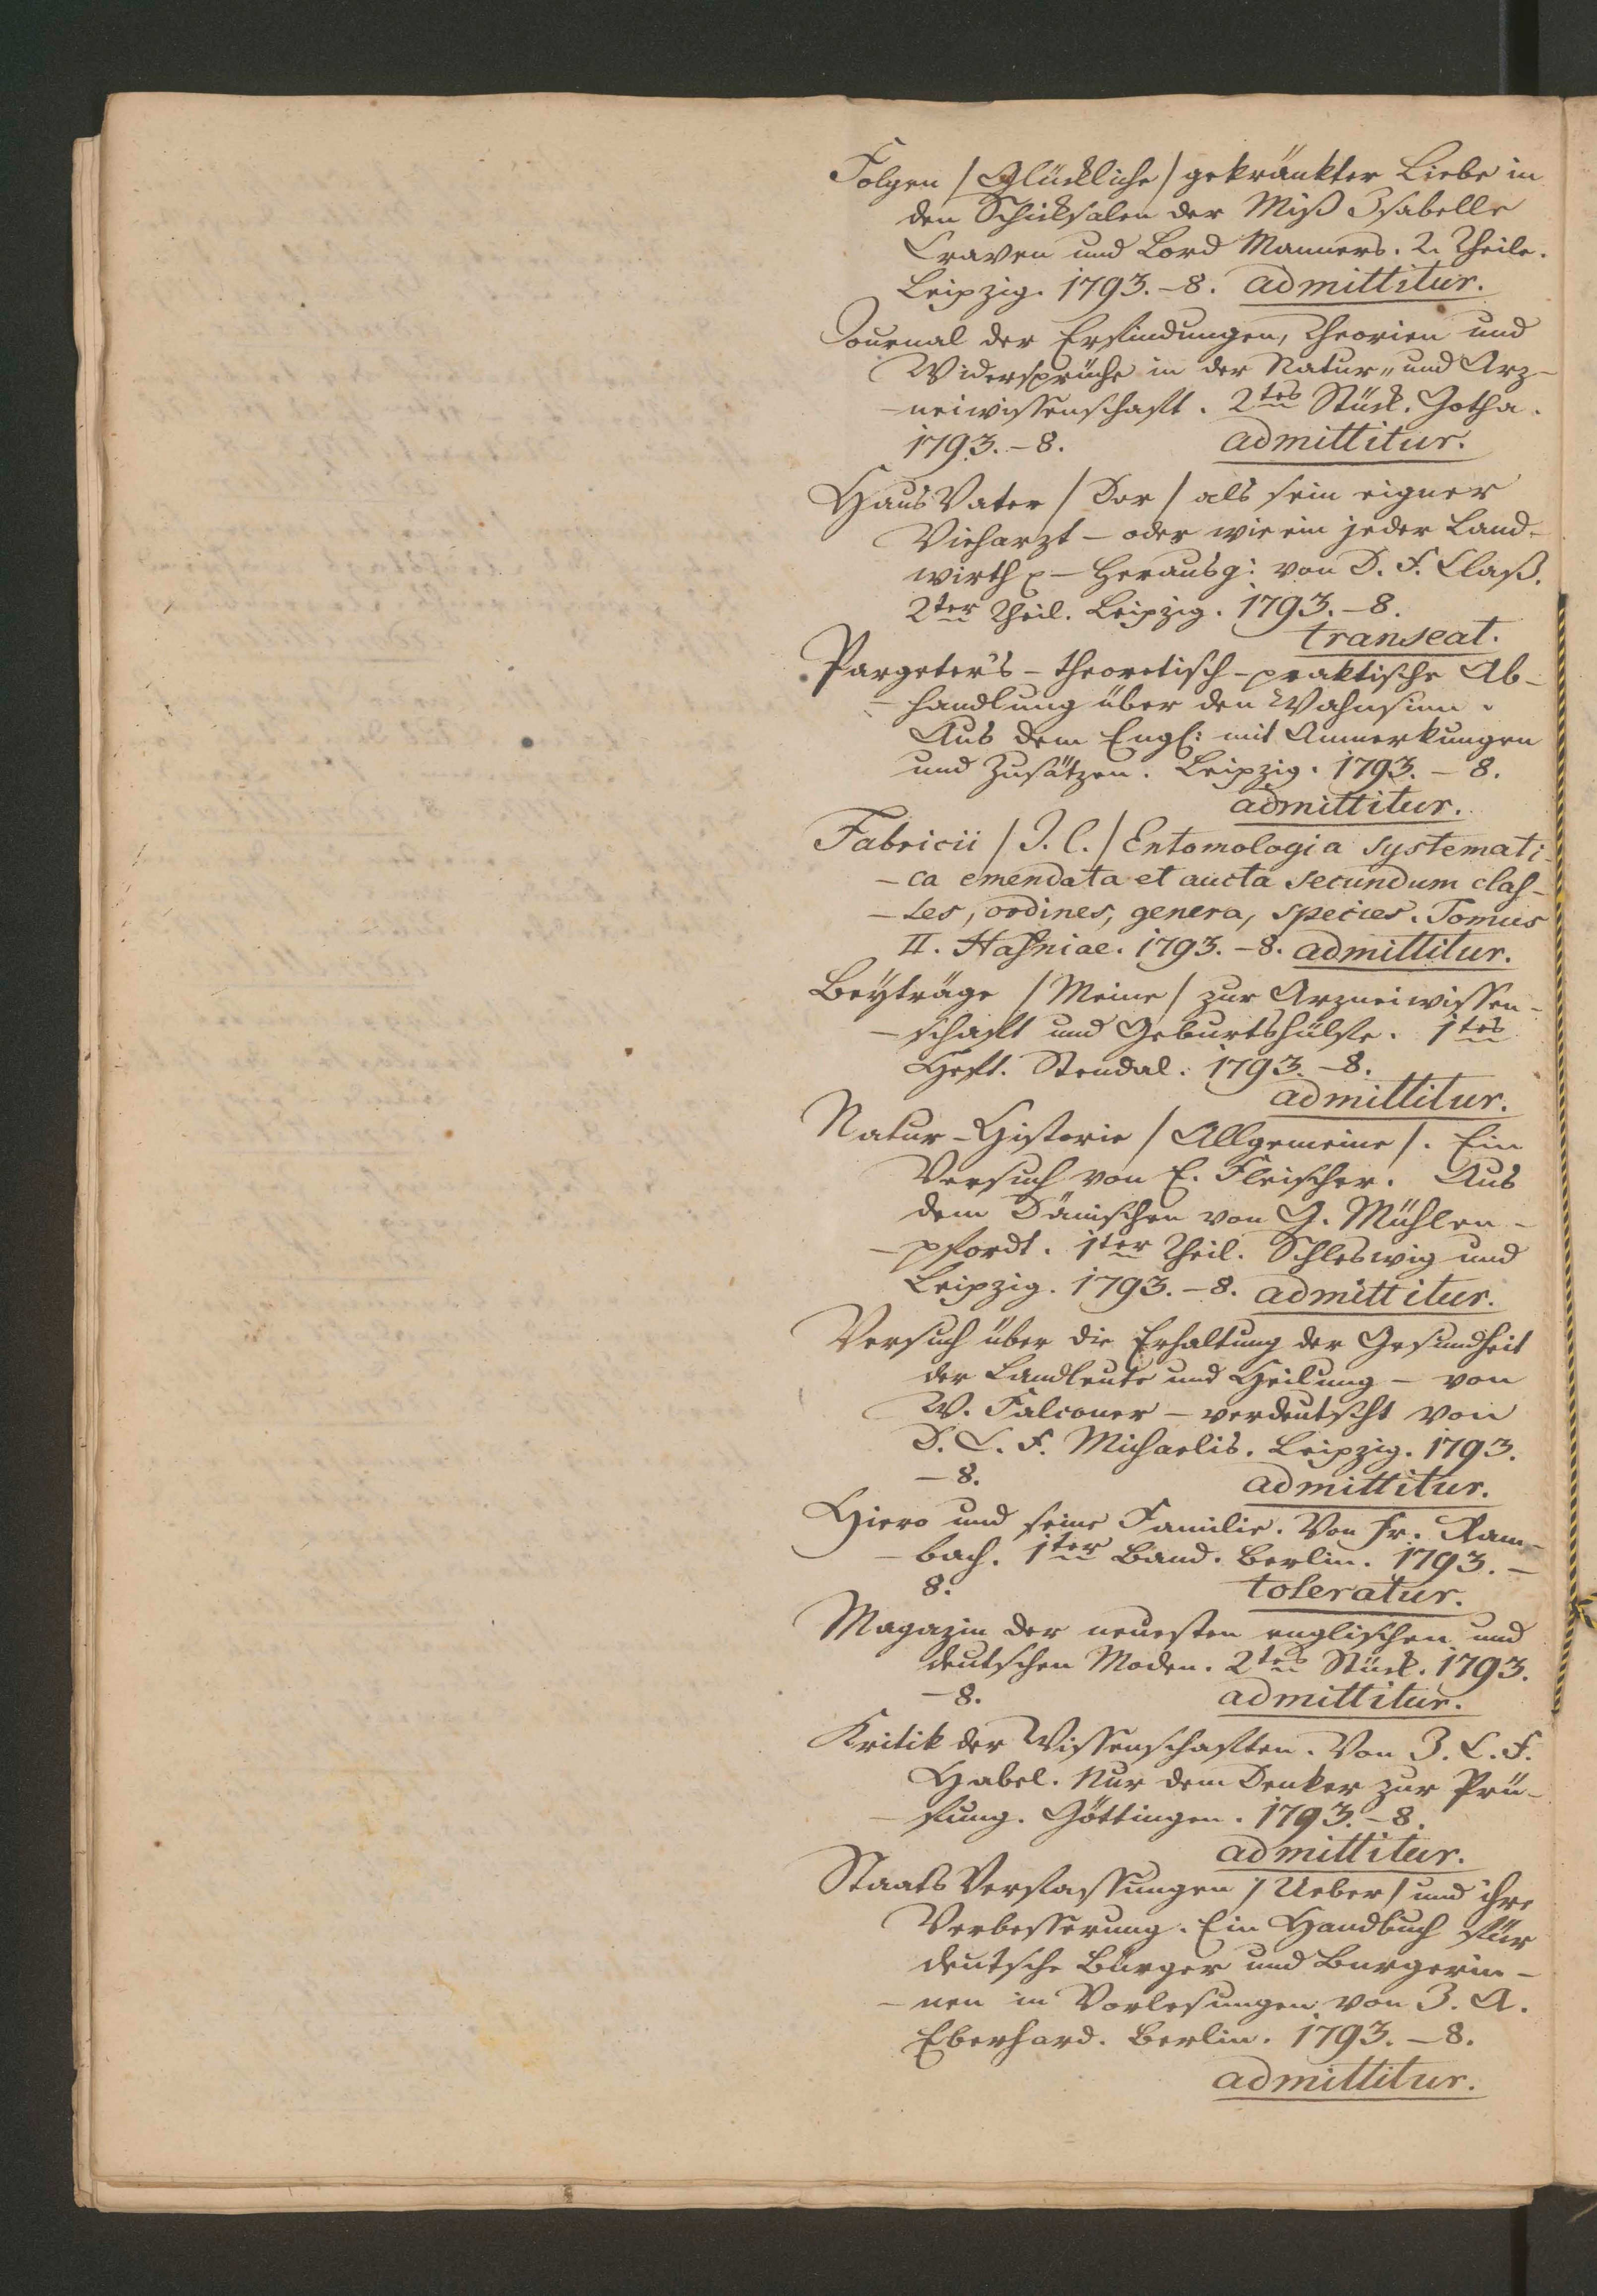 Folgen /Glückliche/ gekränkter Liebe in
den Schicksalen der Miß Isabelle
Craven und Lord Manners. 2. Theile.
Leipzig. 1793. – 8. admittitur.
Journal der Erfindungen, Theorien und
Widersprüche in der Natur„ und Arz-
-neiwissenschaft. 2tes Stück. Gotha.
1793. – 8. admittitur.
Haus Vater /Der/ als sein eigner
Vieharzt – oder wie ein jeder Land-
wirth – Herausg: von D. F. Claß.
2ter Theil. Leipzig. 1793. – 8.
transeat.
Pargeter's – theoretisch-praktische Ab-
-handlung über den Wahnsinn.
Aus dem Engl: mit Anmerkungen
und Zusätzen. Leipzig. 1793. – 8.
admittitur.
Fabricii /J. C./ Entomologia systemati-
-ca emendata et aucta secundum clas-
-ses, ordines, genera, species. Tomus
II. Hafniae. 1793. – 8. admittitur.
Beyträge /Meine/ zur Arzneiwissen-
-schaft und Geburtshülfe. 1tes
Heft. Stendal. 1793. – 8.
admittitur.
Natur-Historie /Allgemeine/. Ein
Versuch von E. Fleischer. Aus
dem Dänischen von G. Mühlen-
-pfordt. 1ter Theil. Schleswig und
Leipzig. 1793. – 8. admittitur.
Versuch über die Erhaltung der Gesundheit
der Landleute und Heilung – von
W. Falconer – verdeutscht von
D. C. F. Michaelis. Leipzig. 1793.
– 8. admittitur.
Hiero und seine Familie. Von Fr. Ram-
-bach. 1ter Band. Berlin. 1793. –
8. toleratur.
Magazin der neuesten englischen und
deutschen Moden. 2tes Stück. 1793.
– 8. admittitur.
Kritik der Wissenschaften. Von J. C. F.
Habel. Nur dem Denker zur Prü-
-fung. Göttingen. 1793. – 8.
admittitur.
Staats Verfassungen /Ueber/ und ihre
Verbesserung. Ein Handbuch für
deutsche Bürger und Burgerin-
-nen in Vorlesungen von J. A.
Eberhard. Berlin. 1793. – 8.
admittitur.